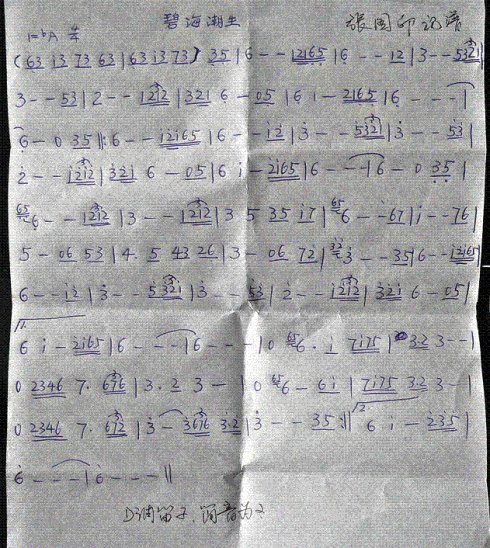 碧海潮生 张国印记谱
1=bA
(63 13 73 63 | 63 13 73) 35 | 6 - - 12165 | 6 - - 12 | 3 - - 5321 |
3 - - 53 | 2 - - 1212 | 321 6 - 05 | 6 i - 2165 | 6 - - - |
6 - 0 35 ‖: 6 - - i2i65 | 6 - - i2 | 3 - - 5321 | 3 - - 53 |
2 - - i2i2 | 321 6 - 05 | 6 i - 2i65 | 6 - - - | 6 - 0 35 |
65 6 - - 1212 | 3 - - 1212 | 3 5 35 i7 | 65 6 - - 67 | i - - 76 |
5 - 06 53 | 4. 5 43 26 | 3 - 06 72 | 32 3 - - 35 | 6 - - i2i65 |
6 - - i2 | 3 - - 5321 | 3 - - 53 | 2 - - i2i2 | 321 6 - 05 |
6 i - 2i65 | 6 - - - | 6 - - - | 0 65 6. i 7i75 | 3.2 3 - - |
0 2346 7. 676 | 3. 2 3 - | 0 65 6 - 6i | 7i75 3.2 3 - |
0 2346 7. 672 | 3 - 3676 3.2 | 3 - - 35 :‖ 6 i - 235 |
6 - - - | 6 - - - ‖
D调笛子,筒音为2